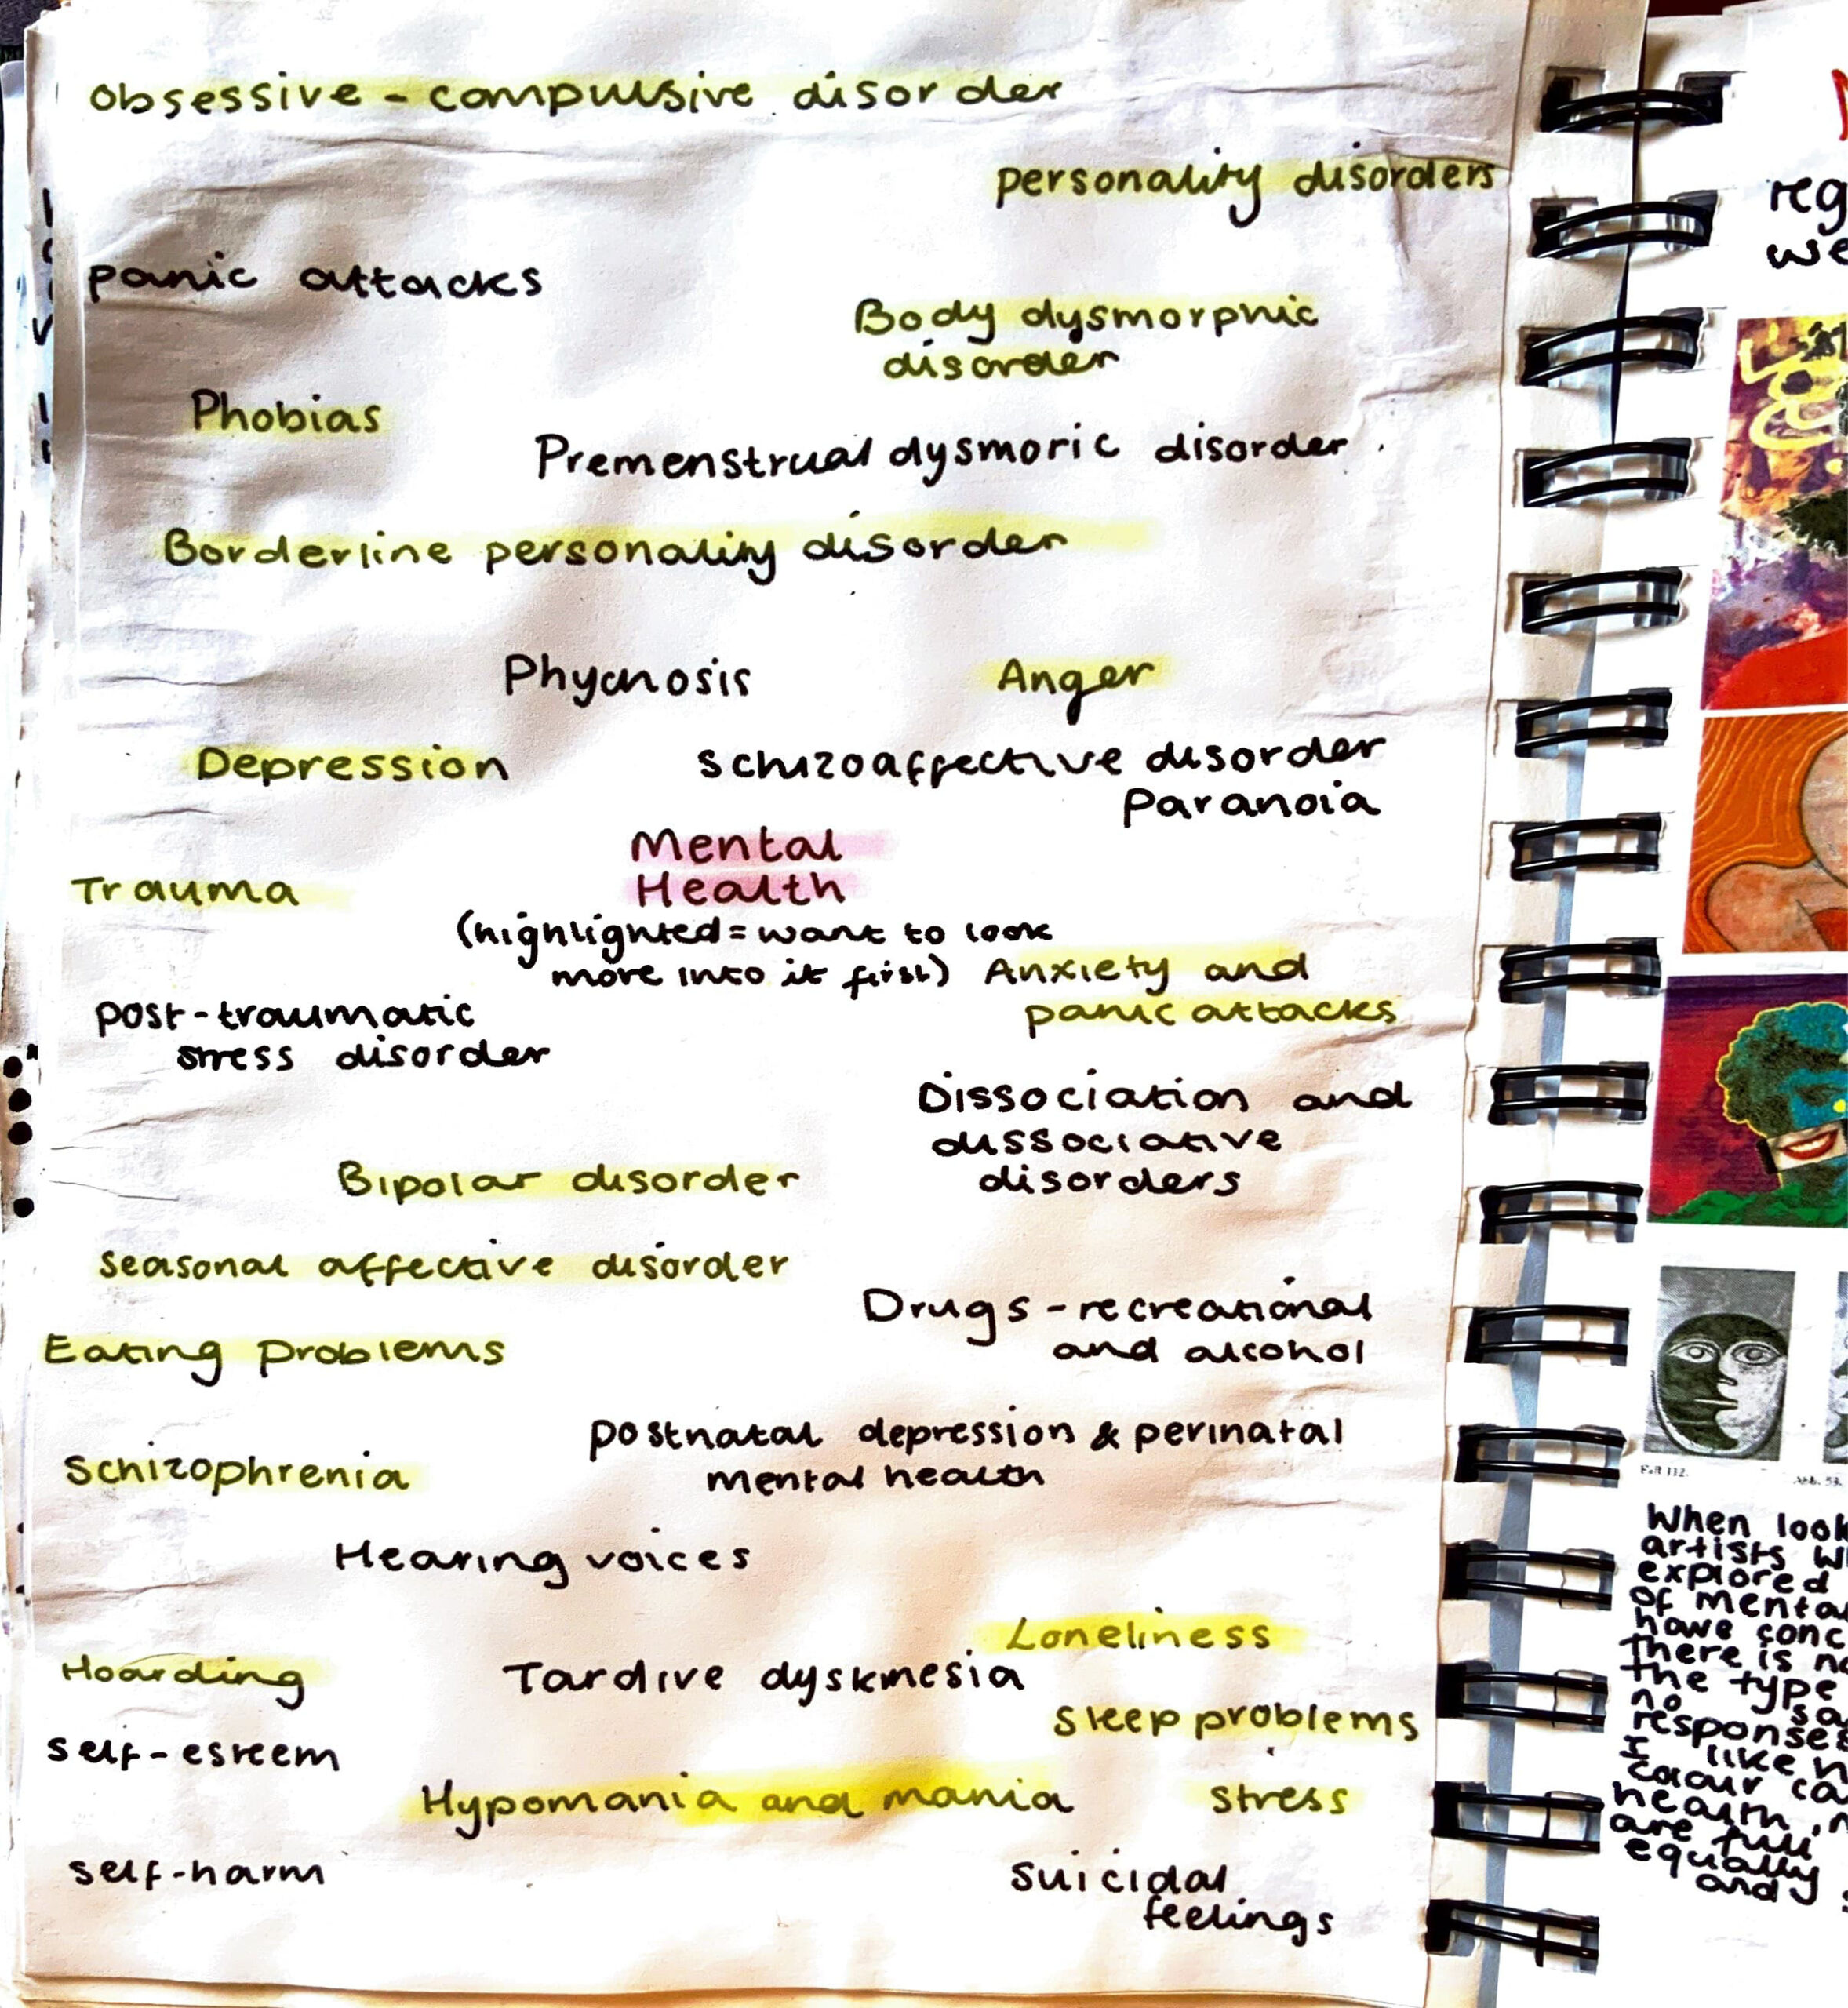 obsessive - compulsive disorder
personality disorders
panic attacks
Body dysmorphic
disorder
Phobias
Premenstrual dysmoric disorder.
Borderline personality disorder
Phycnosis
Anger
Depression
schizoaffective disorder
paranoia
Mental
Health
Trauma
(highlighted = want to look
more into it first)
Anxiety and
panic attacks
post-traumatic
stress disorder
Dissociation and
dissociative
disorders
Bipolar disorder
seasonal affective disorder
Drugs - recreational
and alcohol
Eating problems
postnatal depression & perinatal
mental health
Schizophrenia
Hearing voices
Loneliness
Hoarding
Tardive dyskinesia
sleep problems
self-esteem
Hypomania and mania
stress
self-harm
suicidal
feelings
reg
we
When look
artists wh
explored
of menta
have conc
there is no
the type
no sa
responses
I like h
colour ca
health, 
are full
equally
and